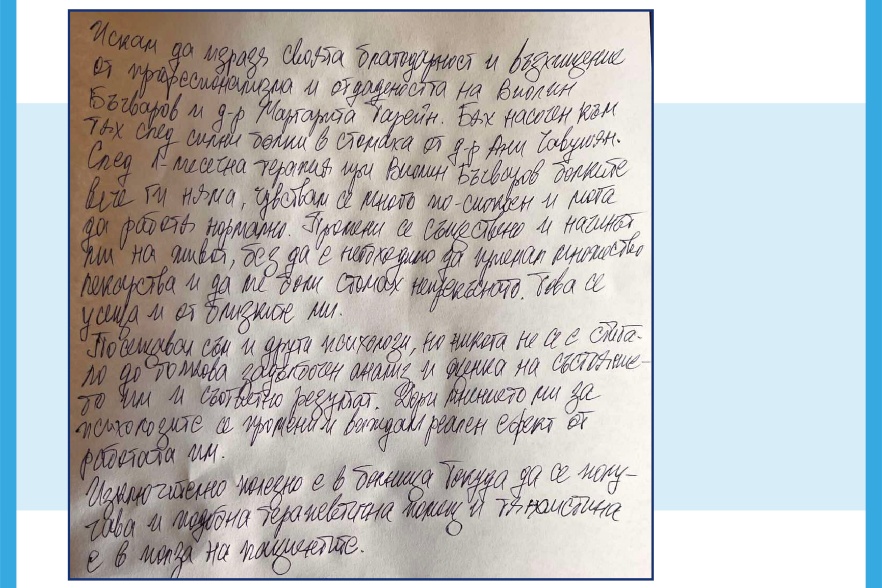 Искам да изразя своята благодарност и възхищение
от професионализма и отдадеността на Виолин
Бъчваров и д-р Маргарита Тарейн. Бях насочен към
тях след силни болки в стомаха от д-р Ани Чавушян.
След -месечна терапия при Виолин Бъчваров болките
вече ги няма, чувствам се много по-спокоен и мога
да работя нормално. Промени се съществено и начинът
ми на живот, без да е необходимо да приемам множество
лекарства и да ме боли стомах непрекъснато. Това се
усеща и от близките ми.
Посещавал съм и други психолози, но никога не се е стига-
ло до толкова задълбочен анализ и оценка на състояние-
то ми и съответно резултат. Дори мнението ми за
психолозите се промени и виждам реален ефект от
работата им.
Изключително полезно е в болница Токуда да се полу-
чава и подобна терапевтична помощ и тя наистина
е в полза на пациентите.